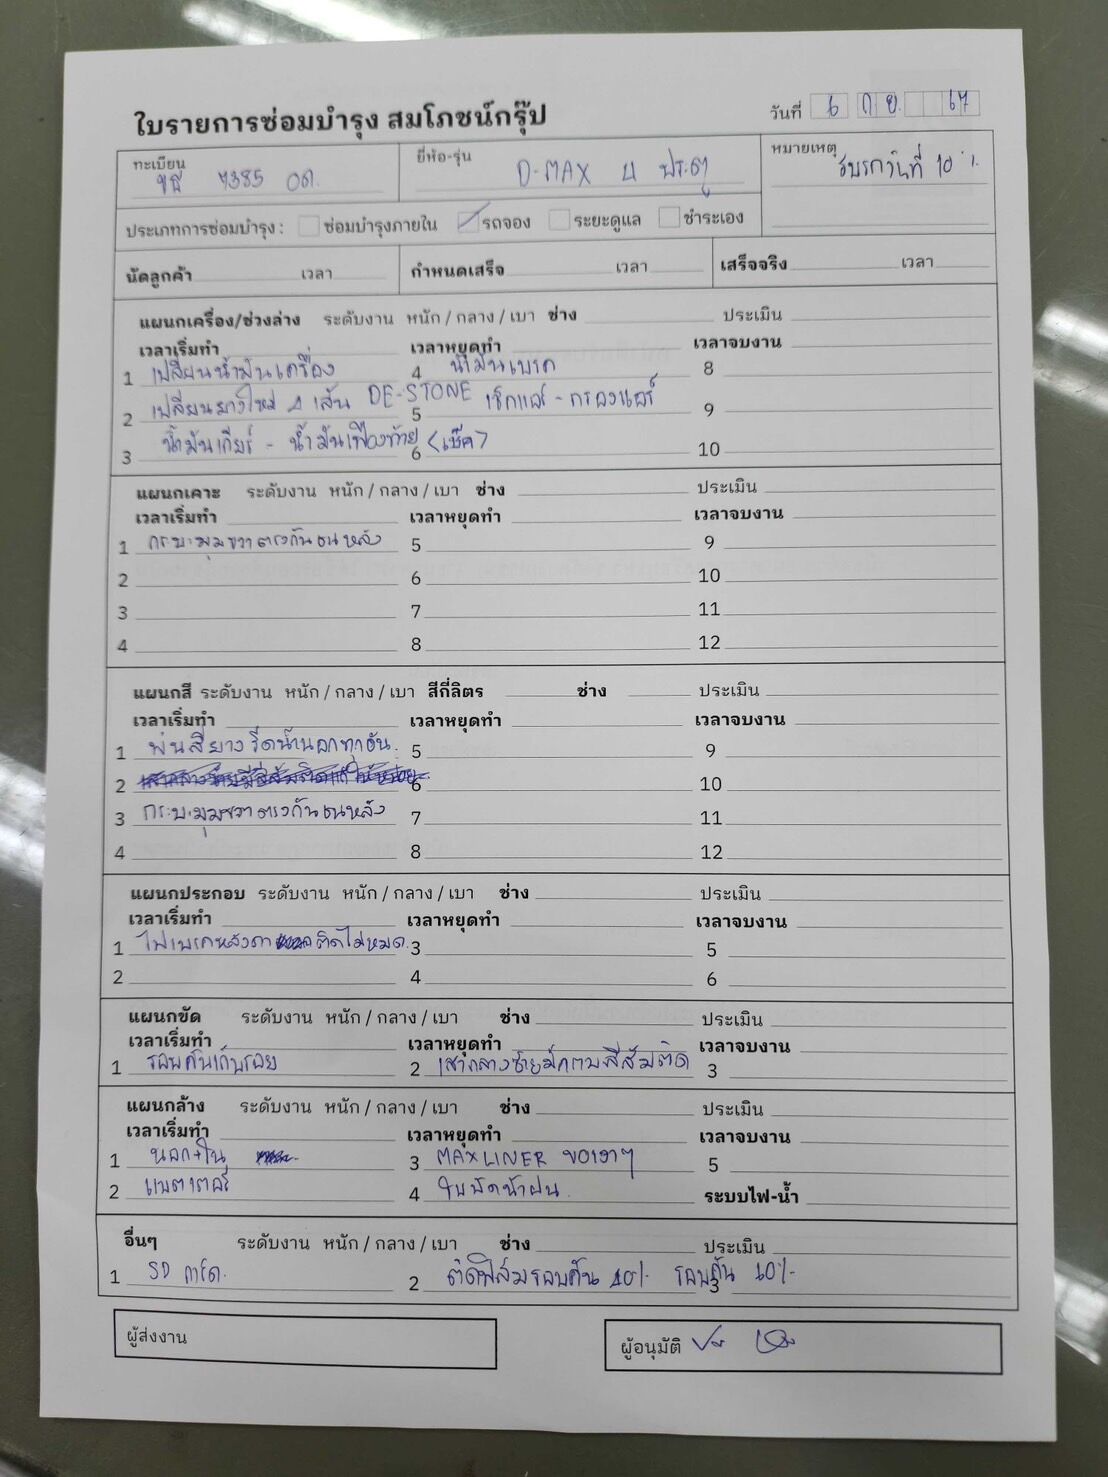 ใบรายการซ่อมบำรุง สมโภชน์กรุ๊ป
วันที่ 6 ก.ย. 67
ทะเบียน 7385
ยี่ห้อ-รุ่น D-MAX 4 ประตู
หมายเหตุ รับรถวันที่ 10
ประเภทการซ่อมบำรุง : ซ่อมบำรุงภายใน รถจอง ระยะดูแล ชำระเอง
นัดลูกค้า เวลา กำหนดเสร็จ เวลา เสร็จจริง เวลา
แผนกเครื่อง/ช่วงล่าง ระดับงาน หนัก / กลาง / เบา ช่าง ประเมิน
เวลาเริ่มทำ เวลาหยุดทำ เวลาจบงาน
1 เปลี่ยนน้ำมันเครื่อง 4 น้ำมันเบรค 8
2 เปลี่ยนยางใหม่ 4 เส้น DE-STONE 5 เช็กแอร์ - กรองแอร์ 9
3 น้ำมันเกียร์ - น้ำมันเฟืองท้าย 6 <เช็ค> 10
แผนกเคาะ ระดับงาน หนัก / กลาง / เบา ช่าง ประเมิน
เวลาเริ่มทำ เวลาหยุดทำ เวลาจบงาน
1 กระบะมุมขวาตรงกันชนหลัง 5 9
2 6 10
3 7 11
4 8 12
แผนกสี ระดับงาน หนัก / กลาง / เบา สีกี่ลิตร ช่าง ประเมิน
เวลาเริ่มทำ เวลาหยุดทำ เวลาจบงาน
1 พ่นสียางรีดน้ำนอกทุกอัน. 5 9
2 6 10
3 กระบะมุมขวาตรงกันชนหลัง 7 11
4 8 12
แผนกประกอบ ระดับงาน หนัก / กลาง / เบา ช่าง ประเมิน
เวลาเริ่มทำ เวลาหยุดทำ เวลาจบงาน
1 ไฟเบรคหลังคา ติดไม่หมด. 3 5
2 4 6
แผนกขัด ระดับงาน หนัก / กลาง / เบา ช่าง ประเมิน
เวลาเริ่มทำ เวลาหยุดทำ เวลาจบงาน
1 รอบคันเก็บรอย 2 เสากลางซ้ายมีคราบสีส้มติด 3
แผนกล้าง ระดับงาน หนัก / กลาง / เบา ช่าง ประเมิน
เวลาเริ่มทำ เวลาหยุดทำ เวลาจบงาน
1 นอก+ใน 3 MAXLINER ขอเงาๆ 5
2 แบตเตอรี่ 4 ใบปัดน้ำฝน ระบบไฟ-น้ำ
อื่นๆ ระดับงาน หนัก / กลาง / เบา ช่าง ประเมิน
1 SD การ์ด. 2 ติดฟิล์มรอบคัน 40% 3 รอบคัน 60%
ผู้ส่งงาน
ผู้อนุมัติ